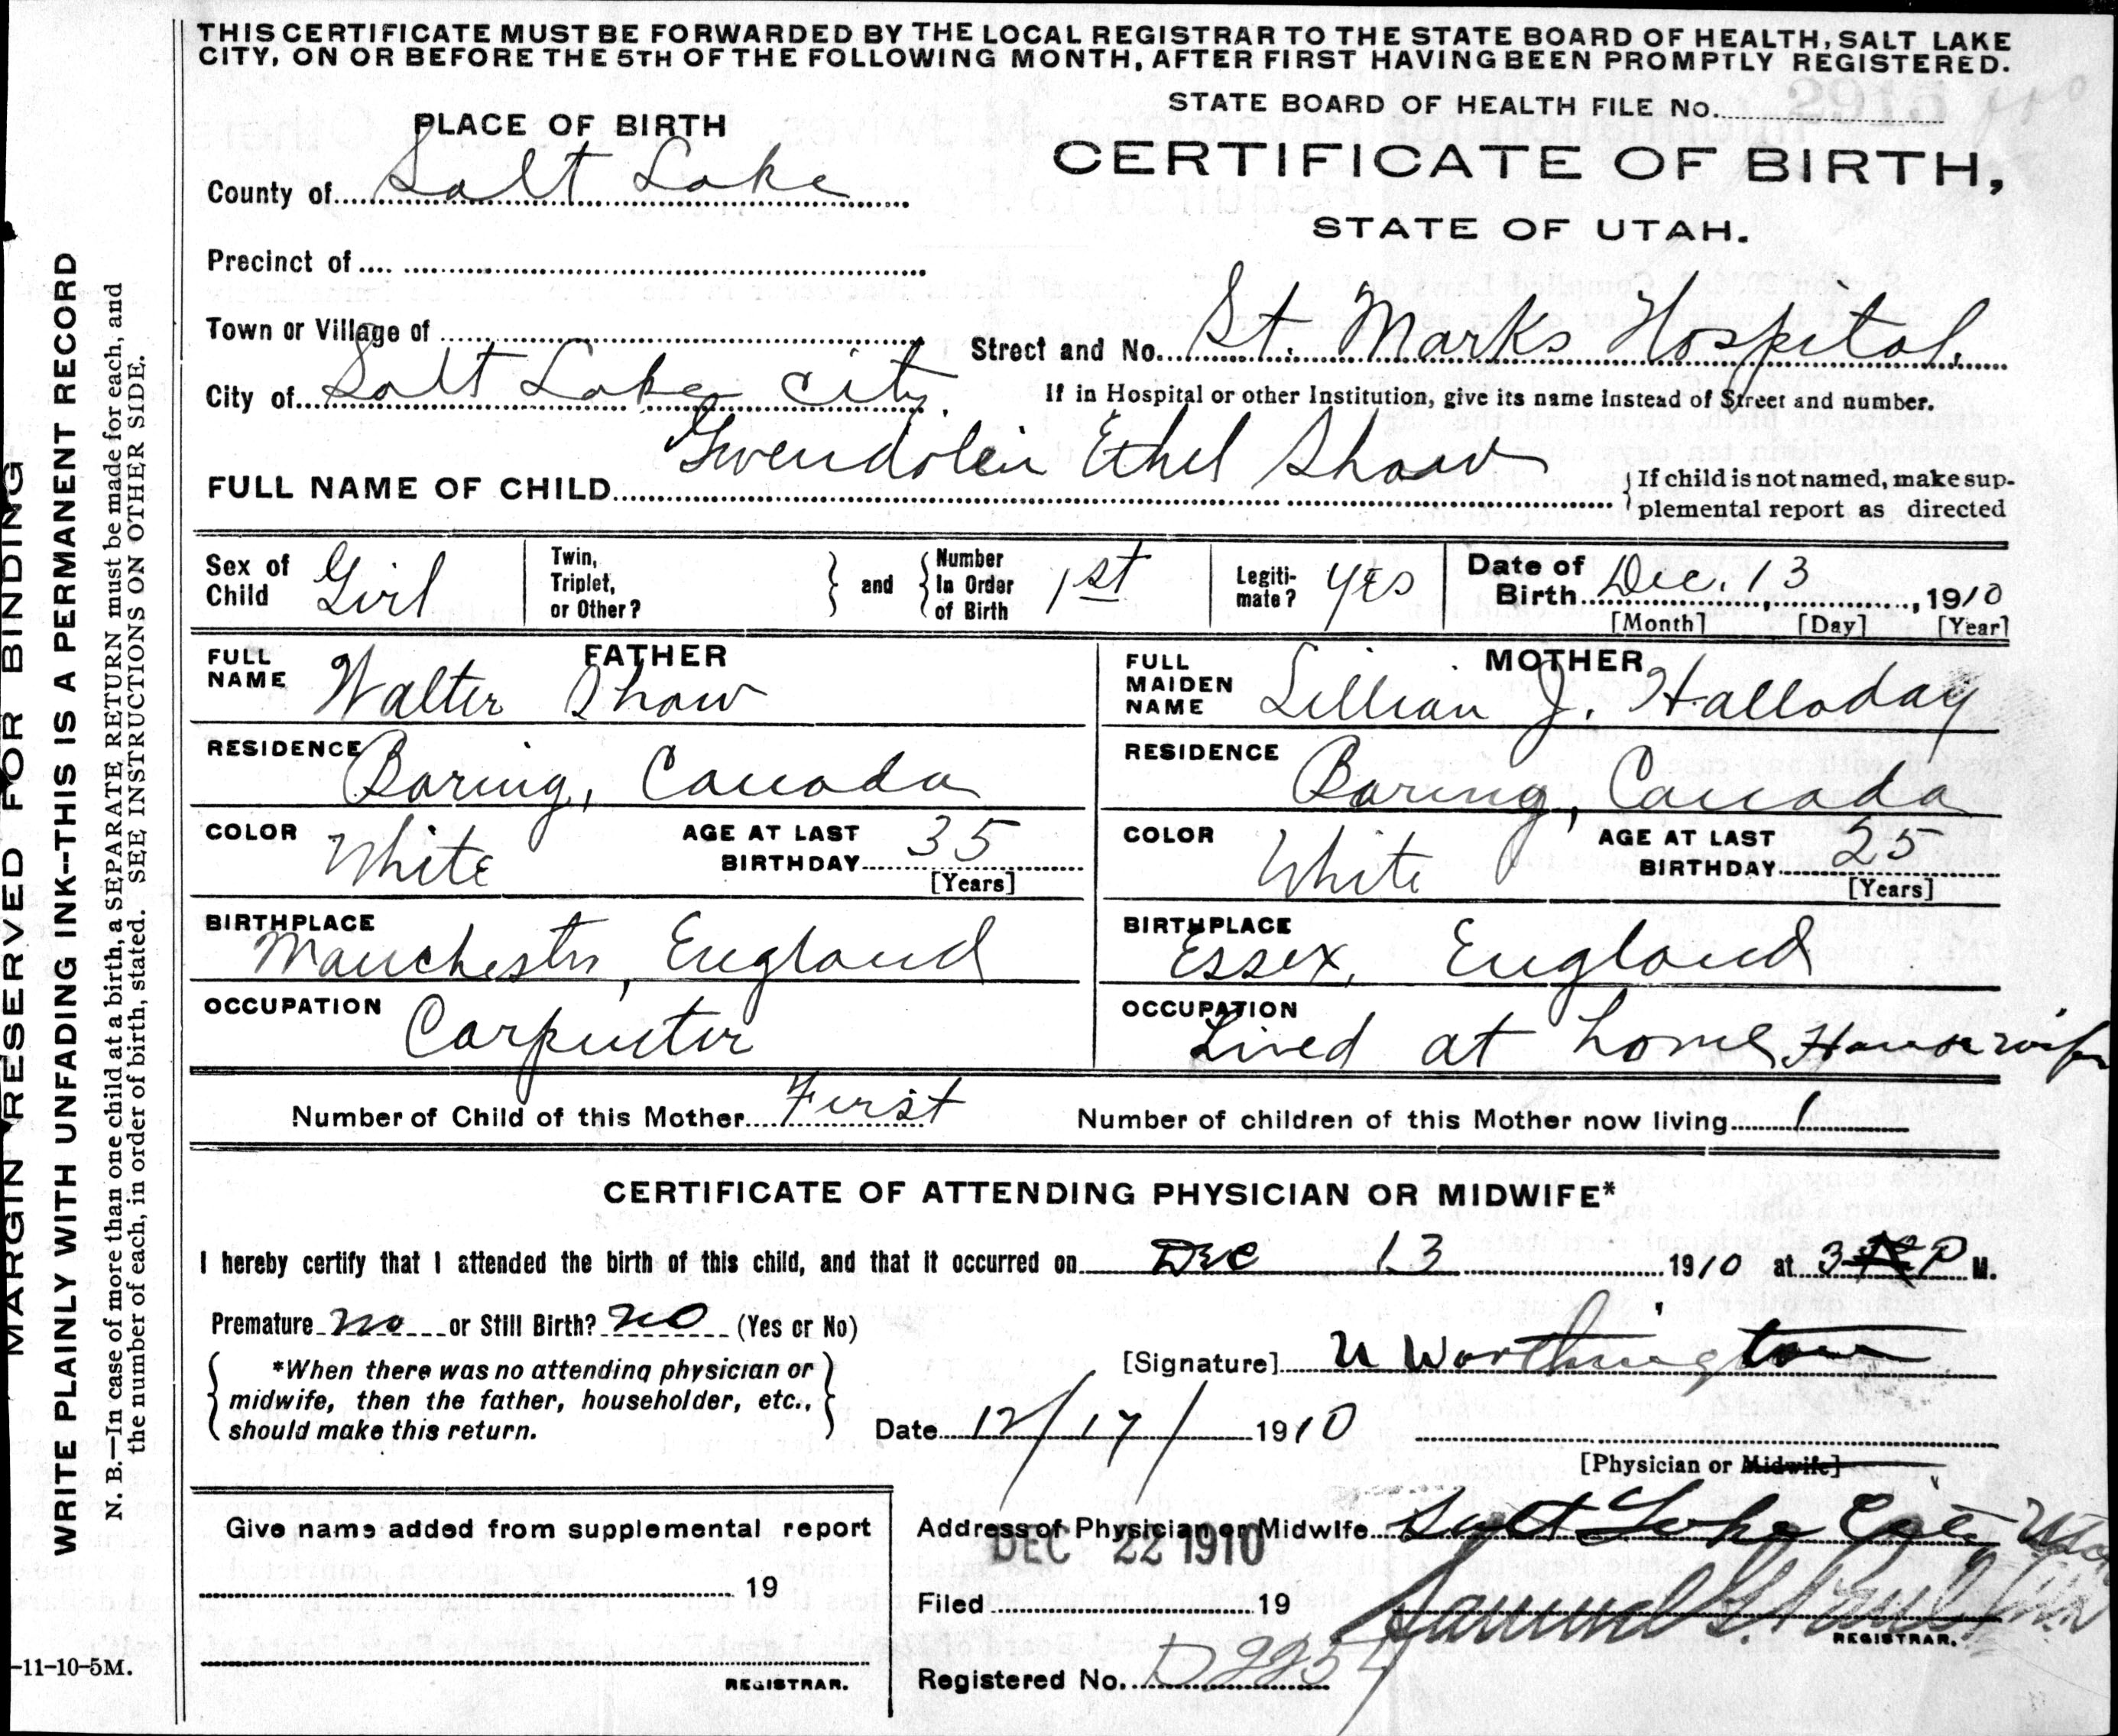 THIS CERTIFICATE MUST BE FORWARDED BY THE LOCAL REGISTRAR TO THE STATE BOARD OF HEALTH, SALT LAKE
CITY, ON OR BEFORE THE 5TH OF THE FOLLOWING MONTH, AFTER FIRST HAVING BEEN PROMPTLY REGISTERED.
STATE BOARD OF HEALTH FILE No. 2915
PLACE OF BIRTH
CERTIFICATE OF BIRTH,
STATE OF UTAH.
County of Salt Lake
Precinct of
Town or Village of
Street and No. St. Marks Hospital,
City of Salt Lake City.
If in Hospital or other Institution, give its name instead of Street and number.
FULL NAME OF CHILD Gwendolin Ethel Shaw
If child is not named, make sup-
plemental report as directed
Sex of Child Girl
Twin, Triplet, or Other?
and Number In Order of Birth 1st
Legiti-mate? Yes
Date of Birth Dec. 13, 1910
[Month] [Day] [Year]
FATHER
FULL NAME Walter Shaw
RESIDENCE Baring, Canada
COLOR White AGE AT LAST BIRTHDAY 35
[Years]
BIRTHPLACE Manchester, England
OCCUPATION Carpenter
MOTHER
FULL MAIDEN NAME Lillian J. Halloday
RESIDENCE Baring, Canada
COLOR White AGE AT LAST BIRTHDAY 25
[Years]
BIRTHPLACE Essex, England
OCCUPATION Lived at home Housewife
Number of Child of this Mother First Number of children of this Mother now living 1
CERTIFICATE OF ATTENDING PHYSICIAN OR MIDWIFE*
I hereby certify that I attended the birth of this child, and that it occurred on Dec 13 1910 at 3 P M.
Premature no or Still Birth? no (Yes or No)
*When there was no attending physician or
midwife, then the father, householder, etc.,
should make this return.
[Signature] U Worthington
Date 12/17/1910
[Physician or Midwife]
Give name added from supplemental report
19
REGISTRAR.
Address of Physician or Midwife Salt Lake City Utah
DEC 22 1910
Filed 19
REGISTRAR.
Registered No. D2254
MARGIN RESERVED FOR BINDING
WRITE PLAINLY WITH UNFADING INK--THIS IS A PERMANENT RECORD
N. B.—In case of more than one child at a birth, a SEPARATE RETURN must be made for each, and
the number of each, in order of birth, stated. SEE INSTRUCTIONS ON OTHER SIDE.
-11-10-5M.